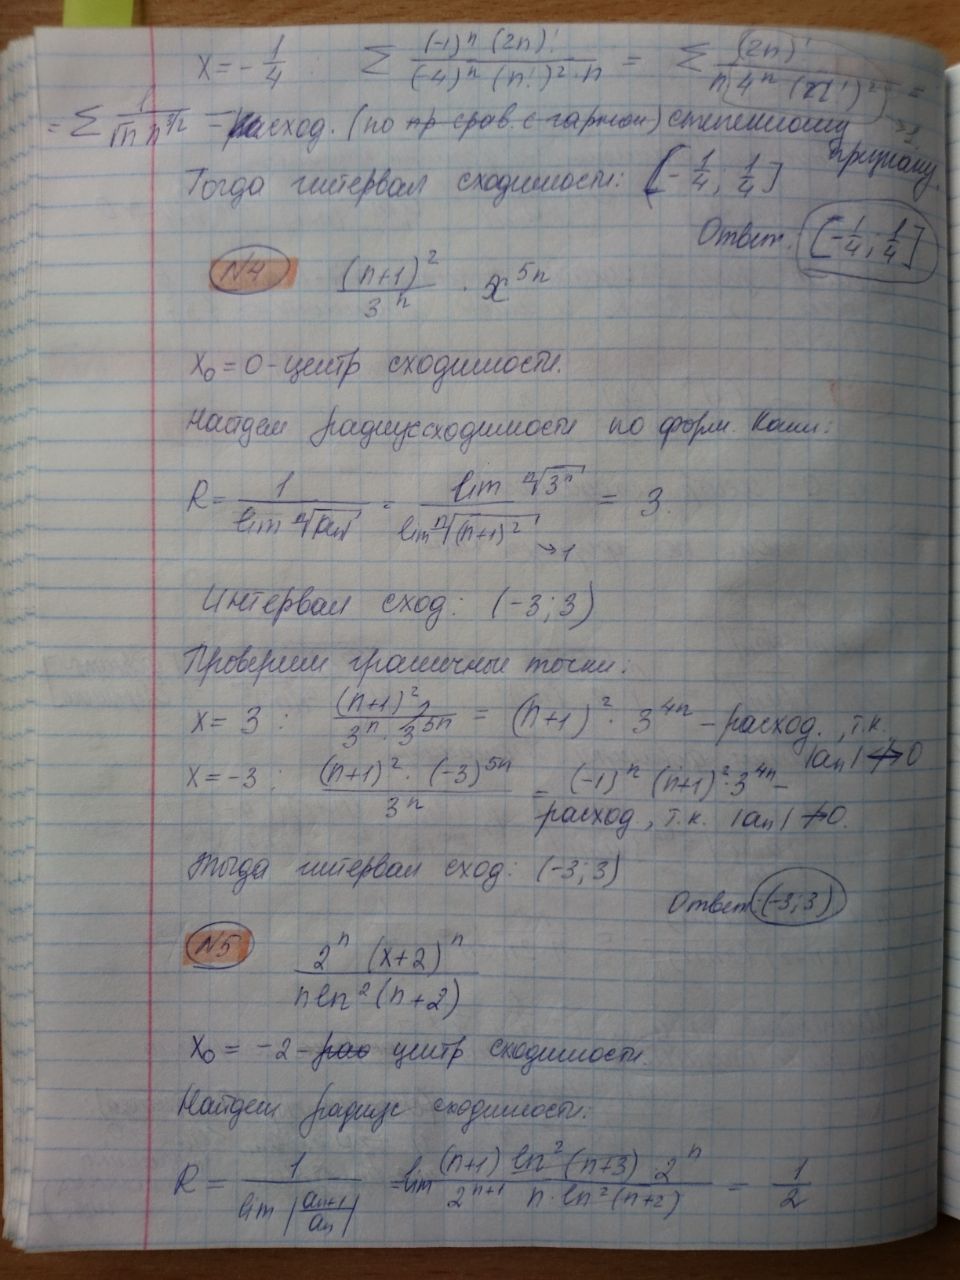 x = -1/4 : Σ (-1)ⁿ (2n)! / (-4)ⁿ (n!)² · n = Σ (2n)! / n 4ⁿ (n!)² =
= Σ 1 / √π n^3/2 - расход. (по пр срав. с гармон) степенному признаку.
Тогда интервал сходимости: [-1/4; 1/4]
Ответ: [-1/4; 1/4]
N4 (n+1)² / 3ⁿ · x⁵ⁿ
x₀ = 0 - центр сходимости.
Найдем радиус сходимости по форм. Коши:
R = 1 / lim ⁿ√|an| = lim ⁿ√3ⁿ / lim ⁿ√(n+1)² →1 = 3.
Интервал сход: (-3; 3)
Проверим граничные точки:
x = 3 : (n+1)² / 3ⁿ · 3⁵ⁿ = (n+1)² · 3⁴ⁿ - расход., т.к. |an| ↛ 0
x = -3 : (n+1)² · (-3)⁵ⁿ / 3ⁿ = (-1)ⁿ (n+1)² · 3⁴ⁿ -
расход, т.к. |an| ↛ 0.
Тогда интервал сход: (-3; 3)
Ответ: (-3; 3)
N5 2ⁿ (x+2)ⁿ / n ln² (n+2)
x₀ = -2 - рао центр сходимости.
Найдем радиус сходимости:
R = 1 / lim |an+1 / an| = lim (n+1) ln² (n+3) 2ⁿ / 2ⁿ⁺¹ n · ln² (n+2) = 1/2